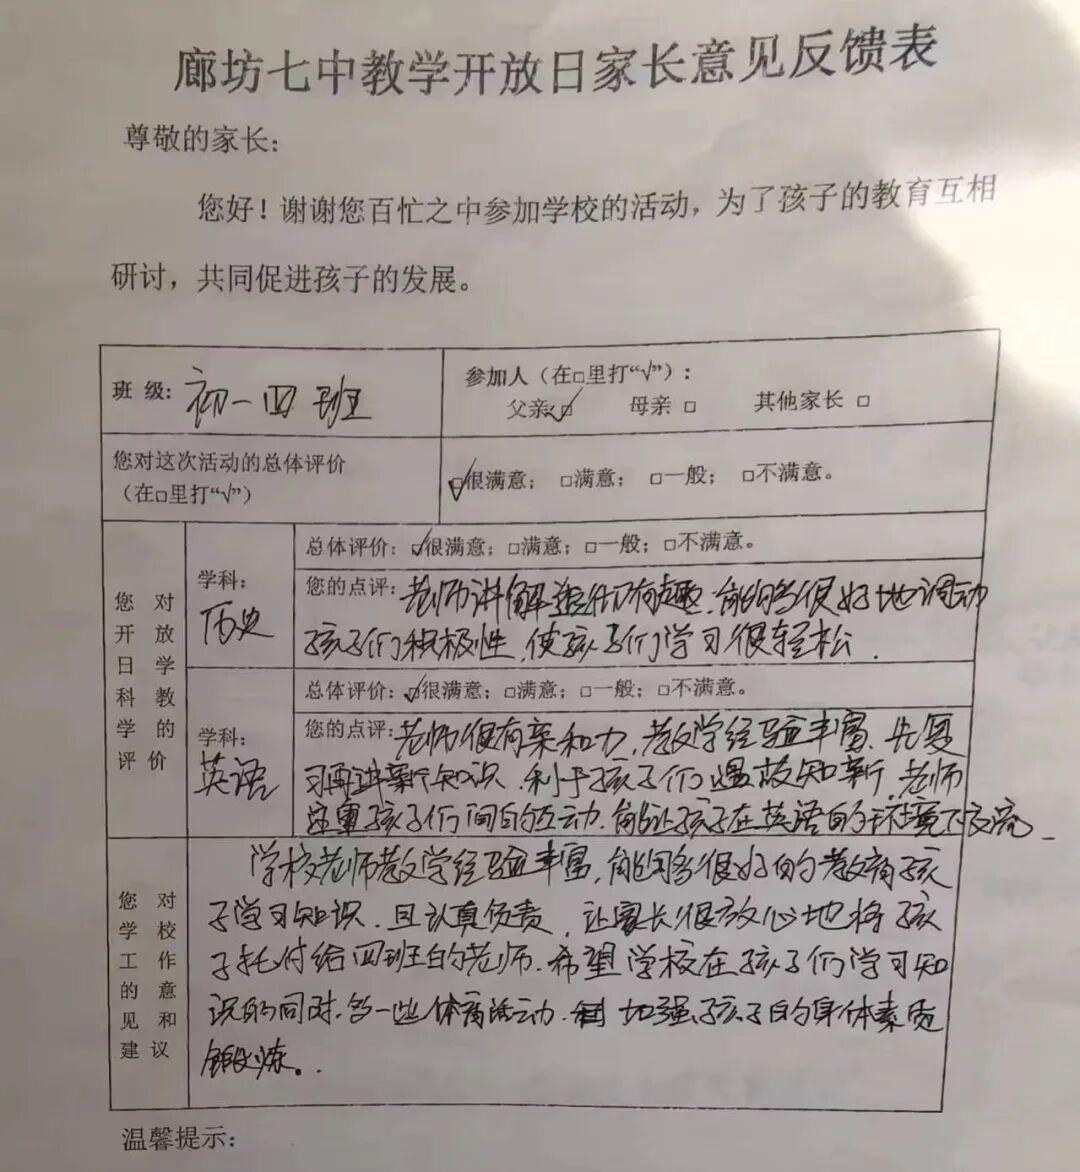 廊坊七中教学开放日家长意见反馈表
尊敬的家长：
您好！谢谢您百忙之中参加学校的活动，为了孩子的教育互相
研讨，共同促进孩子的发展。
班 级：初一四班
参加人（在□里打“√”）：
父亲☑ 母亲 □ 其他家长 □
您对这次活动的总体评价
（在□里打“√”）
☑很满意； □满意； □一般； □不满意。
您 对
开 放
日 学
科 教
学 的
评 价
学科：
历史
总体评价：☑很满意；□满意；□一般；□不满意。
您的点评：老师讲解 有趣，能够很好地调动
孩子们积极性，使孩子们学习很轻松．
学科：
英语
总体评价：☑很满意；□满意；□一般；□不满意。
您的点评：老师很有亲和力，教学经验丰富、先复
习再讲新知识．利于孩子们温故知新，老师
注重孩子们间的互动．能让孩子在英语的环境下交流
您 对
学 校
工 作
的 意
见 和
建 议
学校老师教学经验丰富，能够很好的教育孩
子学习知识．且认真负责，让家长很放心地将孩
子托付给四班的老师．希望学校在孩子们学习知
识的同时．多一些体育活动． 加强孩子的身体素质
锻炼。
温馨提示：